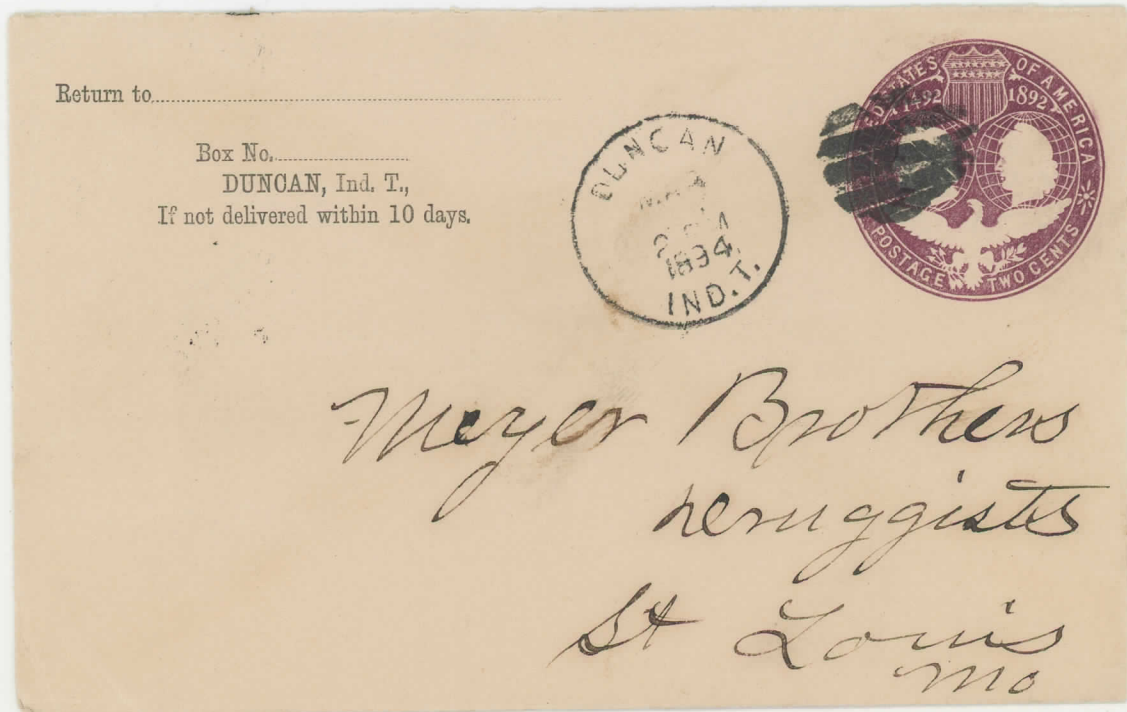 Return to
Box No.
DUNCAN, Ind. T.,
If not delivered within 10 days.
DUNCAN
1894
IND. T.
UNITED STATES OF AMERICA
1492 1892
POSTAGE TWO CENTS
Meyer Brothers
Druggists
St Louis
Mo